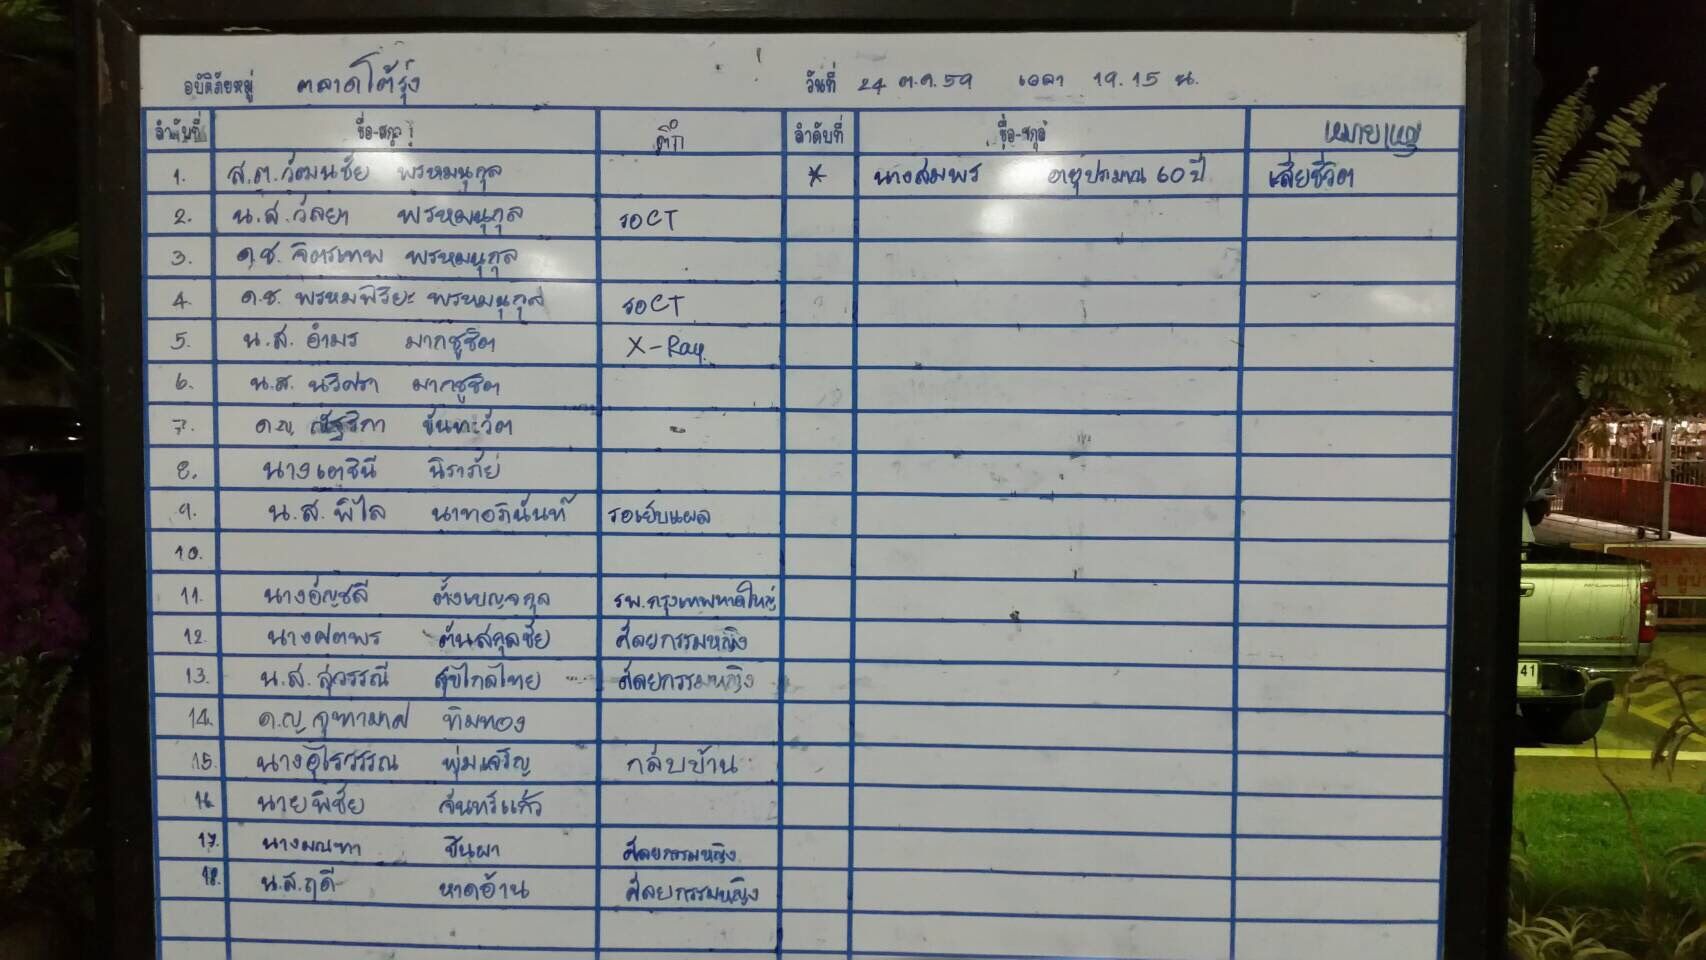 อุบัติภัยหมู่ ตลาดโต้รุ่ง วันที่ 24 ต.ค.59 เวลา 19.15 น.
ลำดับที่ ชื่อ-สกุล ตึก ลำดับที่ ชื่อ-สกุล หมายเหตุ
1. ส.ต.วัฒนชัย พรหมนุกุล * นางสมพร อายุประมาณ 60 ปี เสียชีวิต
2. น.ส.วัลยา พรหมนุกุล รอCT
3. ด.ช. จิตรเทพ พรหมนุกุล
4. ด.ช. พรหมพิริยะ พรหมนุกุล รอCT
5. น.ส. อำมร มากชูชิต X-Ray
6. น.ส. นริศรา มากชูชิต
7. ด.ญ. ณัฐริกา ขันทะวัต
8. นางเตชินี นิราภัย
9. น.ส.พิไล นาทอภินันท์ รอเย็บแผล
10.
11. นางอัญชลี ตั้งเบญจกุล รพ.กรุงเทพหาดใหญ่
12. นางศตพร ตันสกุลชัย ศัลยกรรมหญิง
13. น.ส.สุวรรณี สุขไกลไทย ศัลยกรรมหญิง
14. ด.ญ.จุฑามาศ ทิมทอง
15. นางอุไรวรรณ พุ่มเจริญ กลับบ้าน
16. นายพิชัย จันทร์แก้ว
17. นางมณฑา ชินผา ศัลยกรรมหญิง
18. น.ส.ฤดี หาดอ้าน ศัลยกรรมหญิง
41